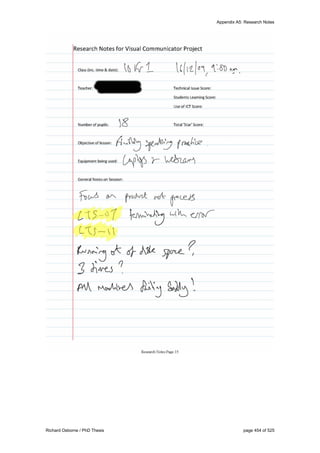 Appendix A5: Research Notes
Research Notes for Visual Communicator Project
Class (inc. time & date): 10 Fr 1 16/12/09, 9:00 am.
Teacher: Technical Issue Score:
Students Learning Score:
Use of ICT Score:
Number of pupils: 18 Total 'Scar' Score:
Objective of lesson: speaking practice
Equipment being used: Laptops + webcams
General Notes on Session:
Focus on product not process
LTS-07 terminating with error
LTS-11
Running out of disk space?
3 drives?
All machines badly!
Research Notes Page 15
Richard Osborne / PhD Thesis page 454 of 525